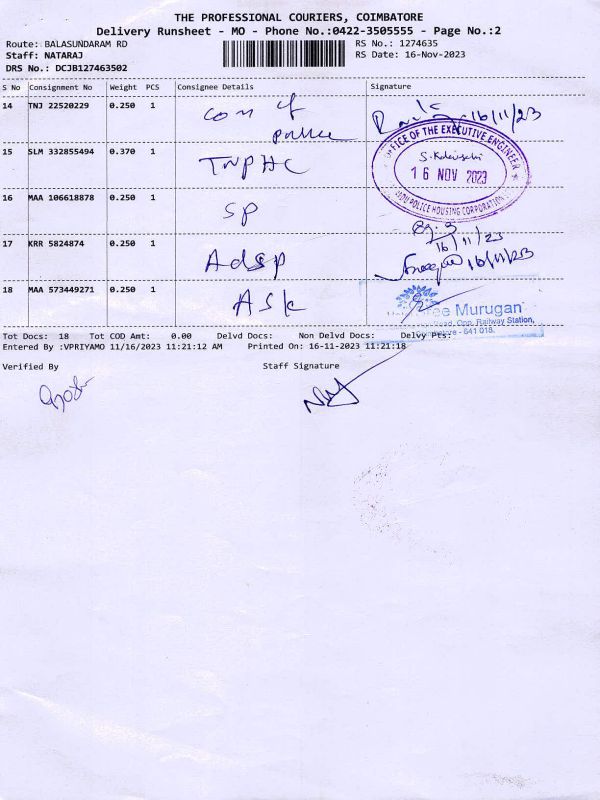 THE PROFESSIONAL COURIERS, COIMBATORE
Delivery Runsheet - MO - Phone No.:0422-3505555 - Page No.:2
Route: BALASUNDARAM RD
RS No.: 1274635
Staff: NATARAJ
RS Date: 16-Nov-2023
DRS No.: DCJB127463502
S No Consignment No Weight PCS Consignee Details Signature
14 TNJ 22520229 0.250 1 com of police 16/11/23
15 SLM 332855494 0.370 1 TNPHC
OFFICE OF THE EXECUTIVE ENGINEER
16 NOV 2023
POLICE HOUSING CORPORATION
16 MAA 106618878 0.250 1 SP
16/11/23
17 KRR 5824874 0.250 1 Adsp 16/11/23
18 MAA 573449271 0.250 1 ASK
ee Murugan
Road, Opp. Railway Station,
- 641 018.
Tot Docs: 18 Tot COD Amt: 0.00 Delvd Docs: Non Delvd Docs: Delvy Pts:
Entered By :VPRIYAMO 11/16/2023 11:21:12 AM Printed On: 16-11-2023 11:21:18
Verified By Staff Signature